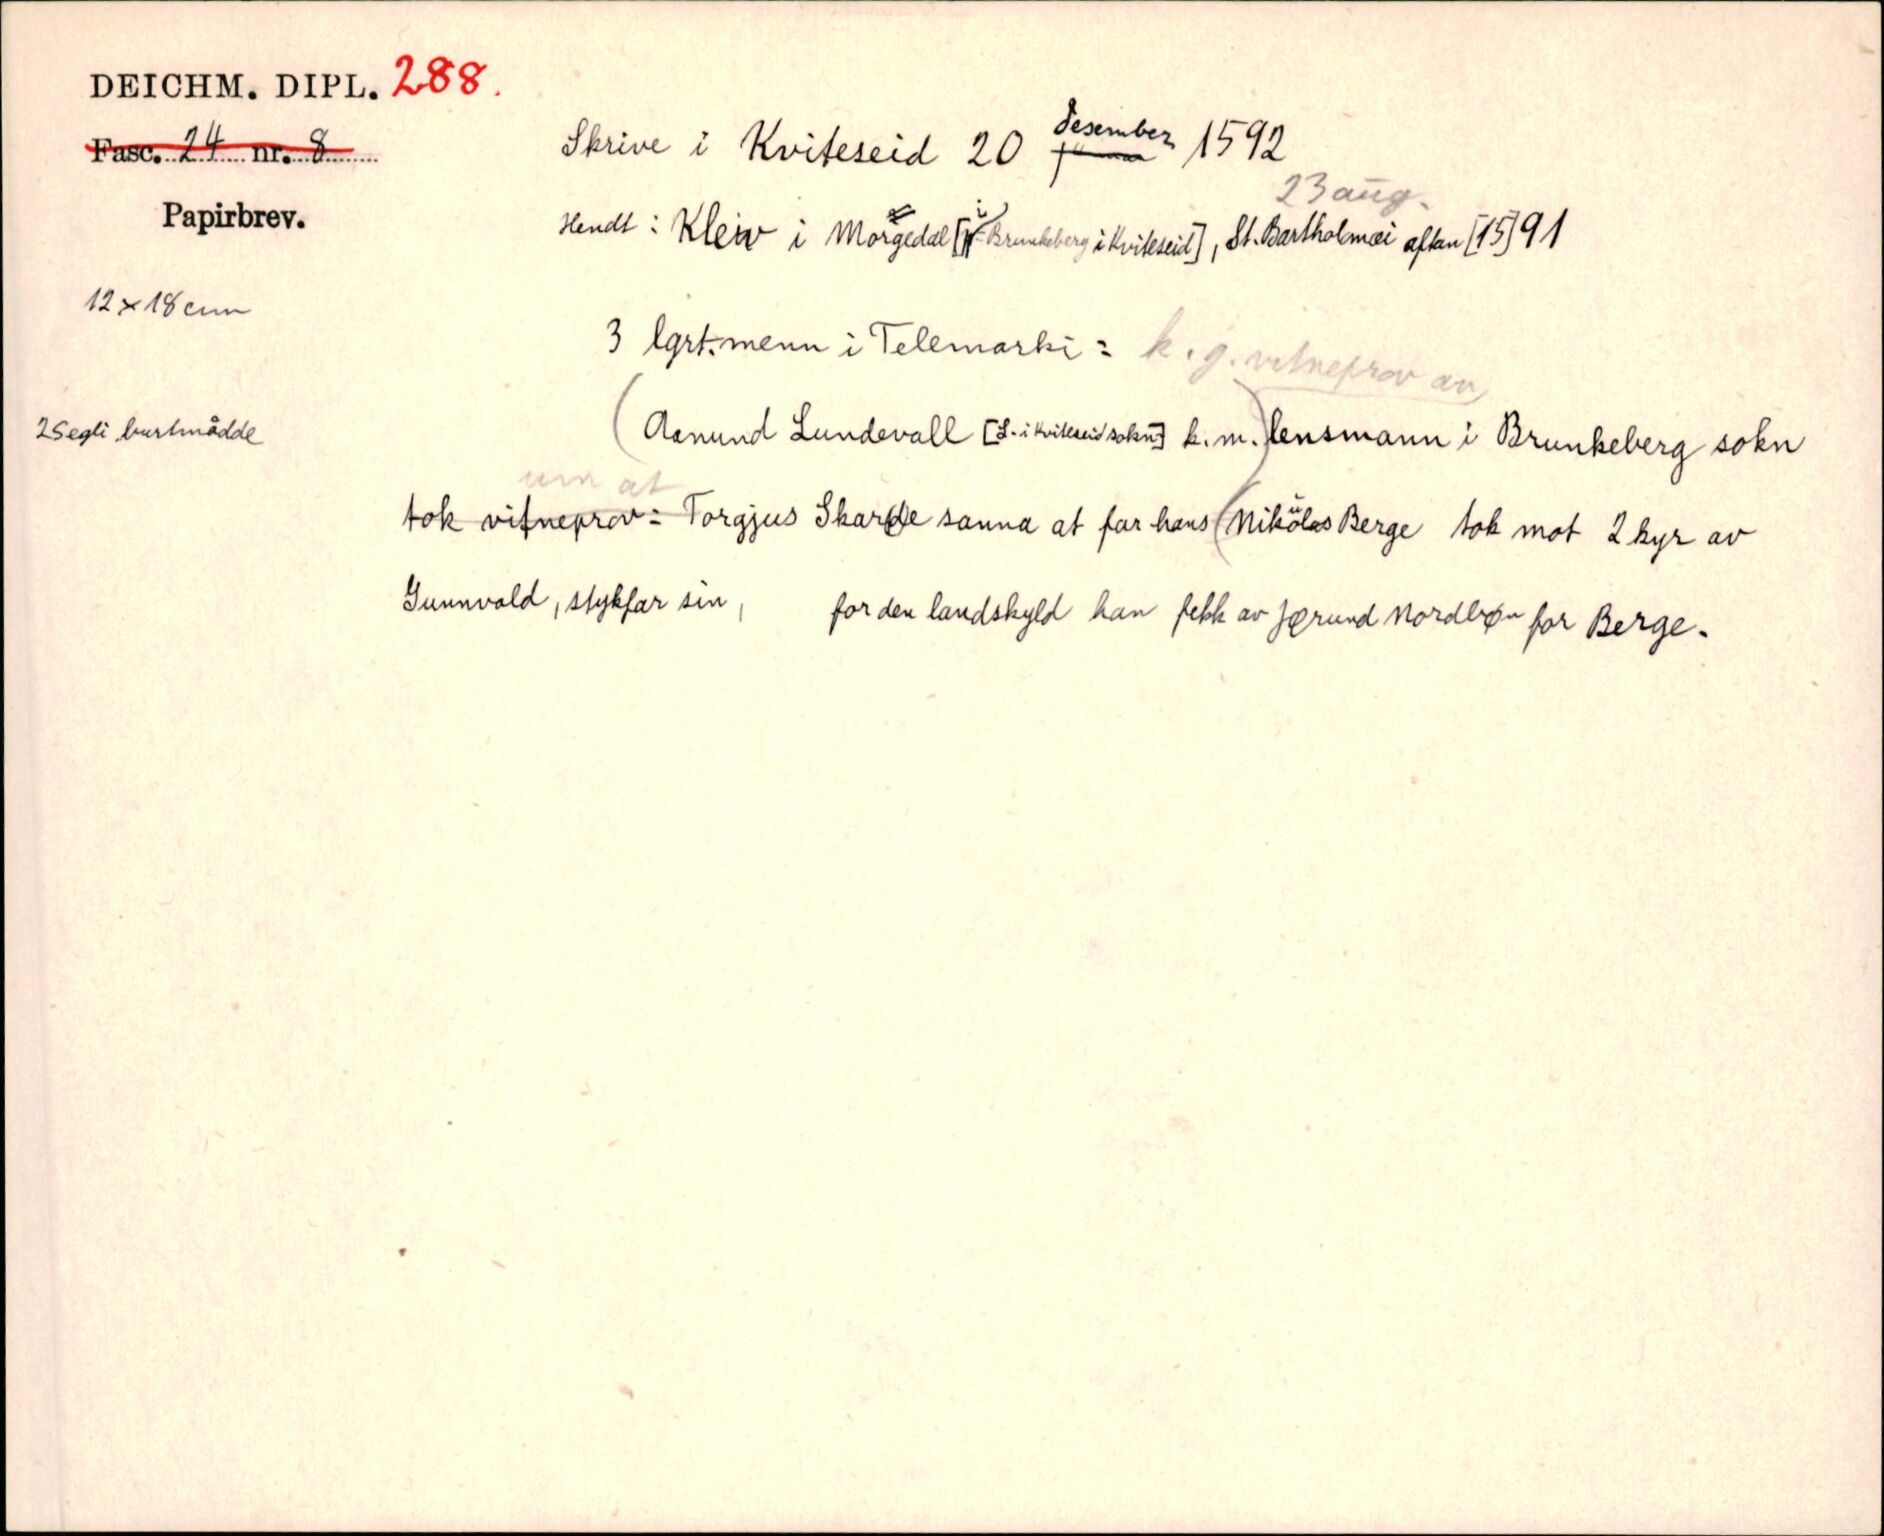 DEICHM. DIPL. 288.
Fasc. 24 nr. 8
Papirbrev.
12 × 18 cm
2 segli burtmådde
Skrive i Kviteseid 20 desember 1592
23 aug.
Hendt: Kleiv i Morgedal [i Brunkeberg i Kviteseid], St. Bartholmæi aftan [15]91
3 lgrt.menn i Telemarki: k. g. vitneprov av
(Aanund Lundevall [L. i Kviteseid sokn] k. m.) lensmann i Brunkeberg sokn
um at
tok vitneprov: Torgjus Skarde sanna at far hans (Nikolas Berge tok mot 2 kyr av
Gunnvald, stykfar sin, for den landskyld han fekk av Jørund Nordbøn for Berge.